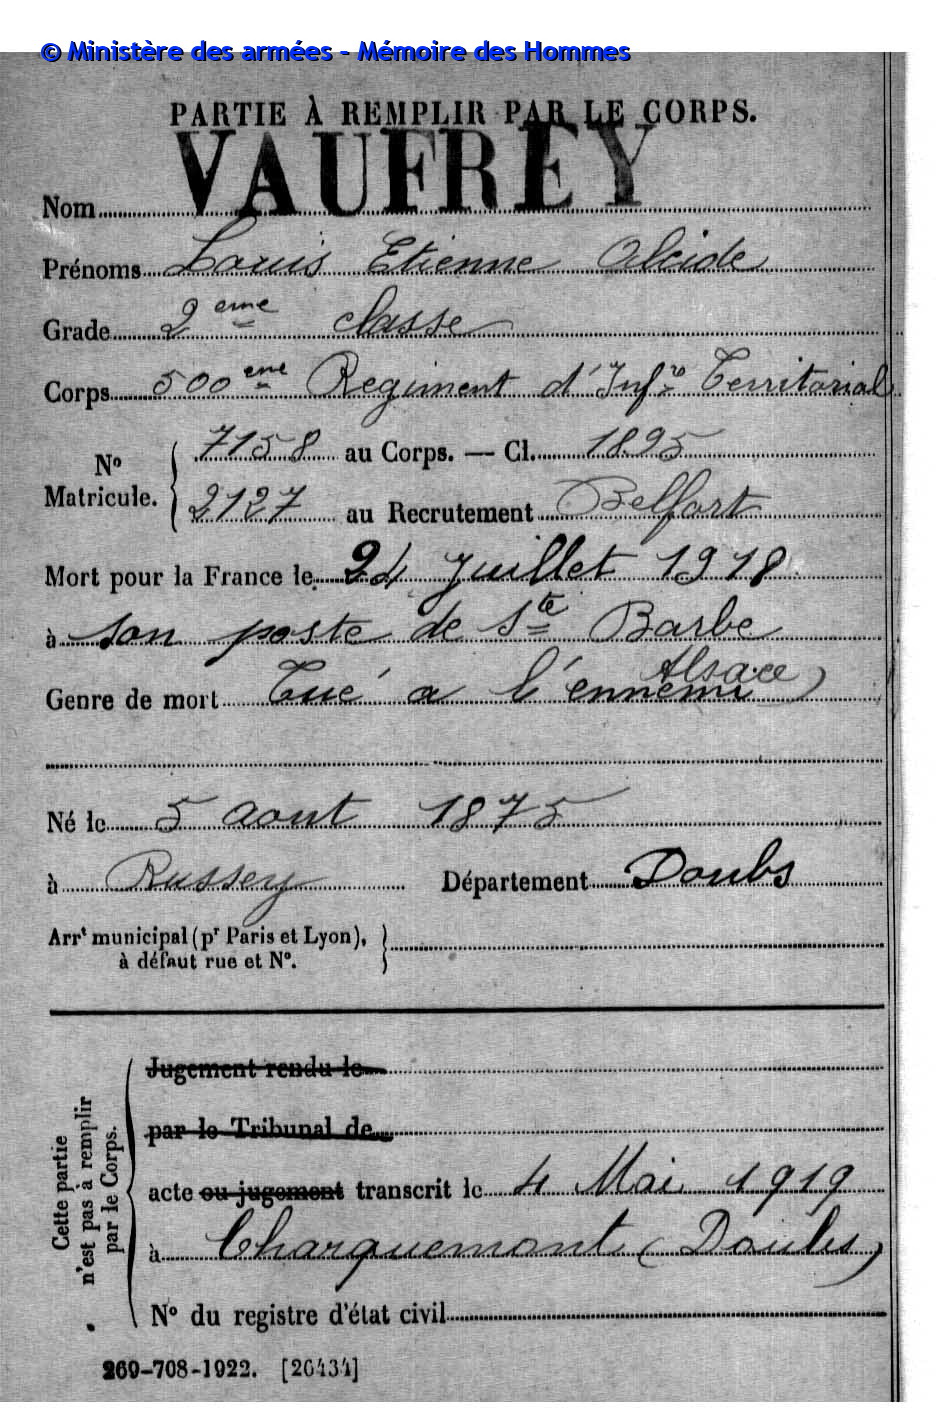 © Ministère des armées - Mémoire des Hommes
PARTIE À REMPLIR PAR LE CORPS.
Nom VAUFREY
Prénoms Louis Etienne Alcide
Grade 2eme classe
Corps 500eme Regiment d'Infie Territorial
No Matricule. 7158 au Corps. — Cl. 1895
2127 au Recrutement Belfort
Mort pour la France le 24 Juillet 1918
à son poste de Ste Barbe
Alsace)
Genre de mort Tué a l'ennemi
Né le 5 Aout 1875
à Russey Département Doubs
Arrt municipal (pr Paris et Lyon),
à défaut rue et No.
Cette partie n'est pas à remplir par le Corps.
Jugement rendu le
par le Tribunal de
acte ou jugement transcrit le 4 Mai 1919
à Charquemont (Doubs)
No du registre d'état civil
269-708-1922. [20434]